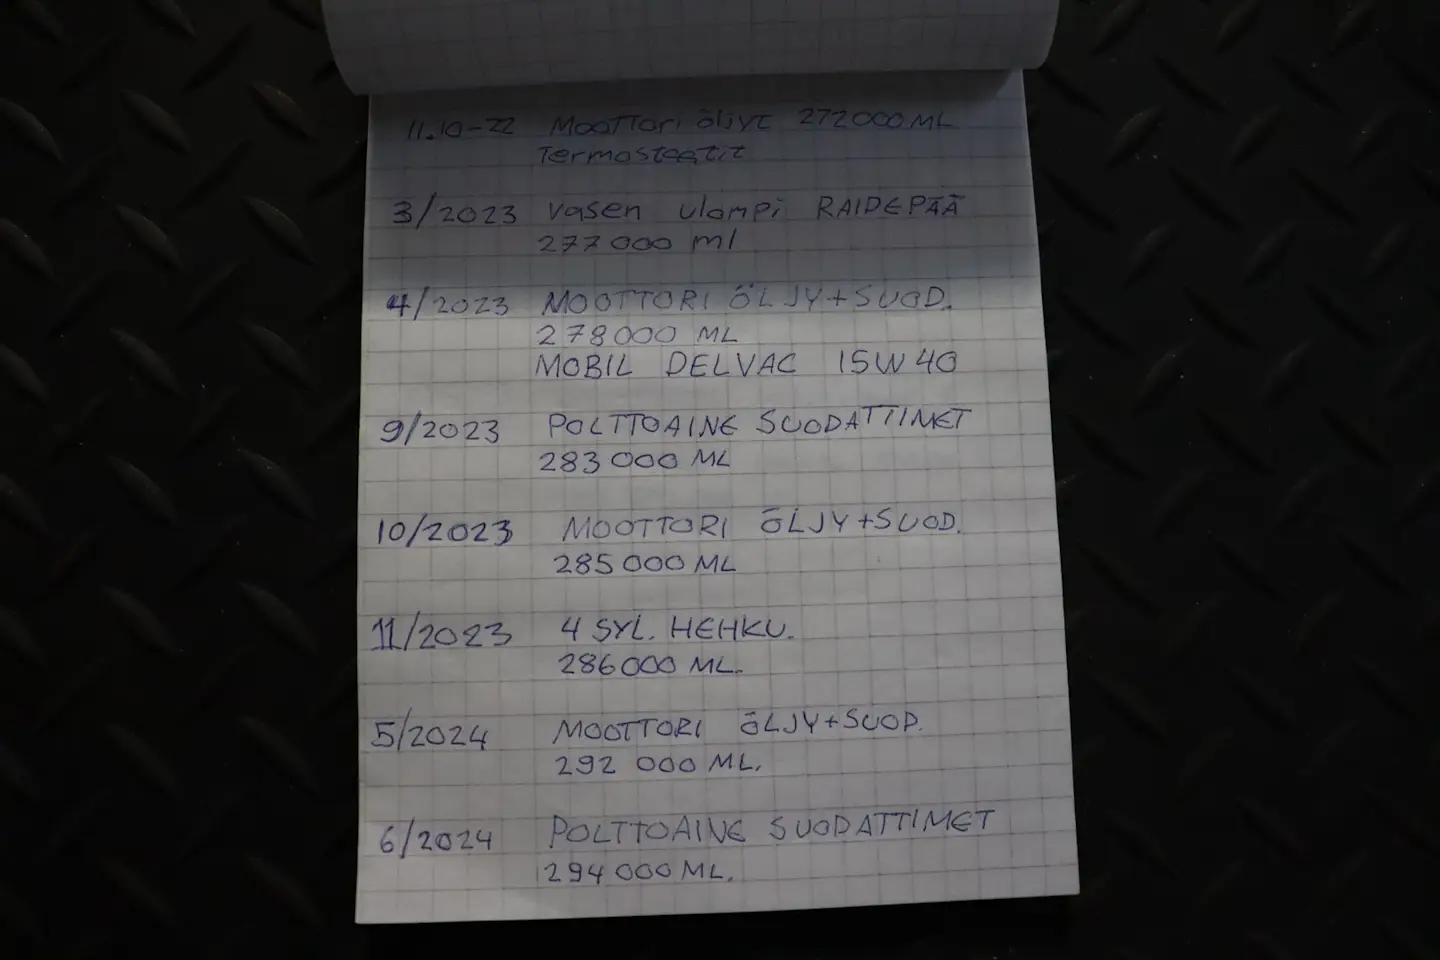 11.10-22 Moottori öljyt 272000 ML
Termosteatit
3/2023 Vasen ulompi RAIDEPÄÄ
277000 ml
4/2023 MOOTTORI ÖLJY+SUOD.
278000 ML
MOBIL DELVAC 15W40
9/2023 POLTTOAINE SUODATTIMET
283 000 ML
10/2023 MOOTTORI ÖLJY+SUOD.
285 000 ML
11/2023 4 SYL. HEHKU.
286000 ML.
5/2024 MOOTTORI ÖLJY+SUOD.
292 000 ML.
6/2024 POLTTOAINE SUODATTIMET
294 000 ML.